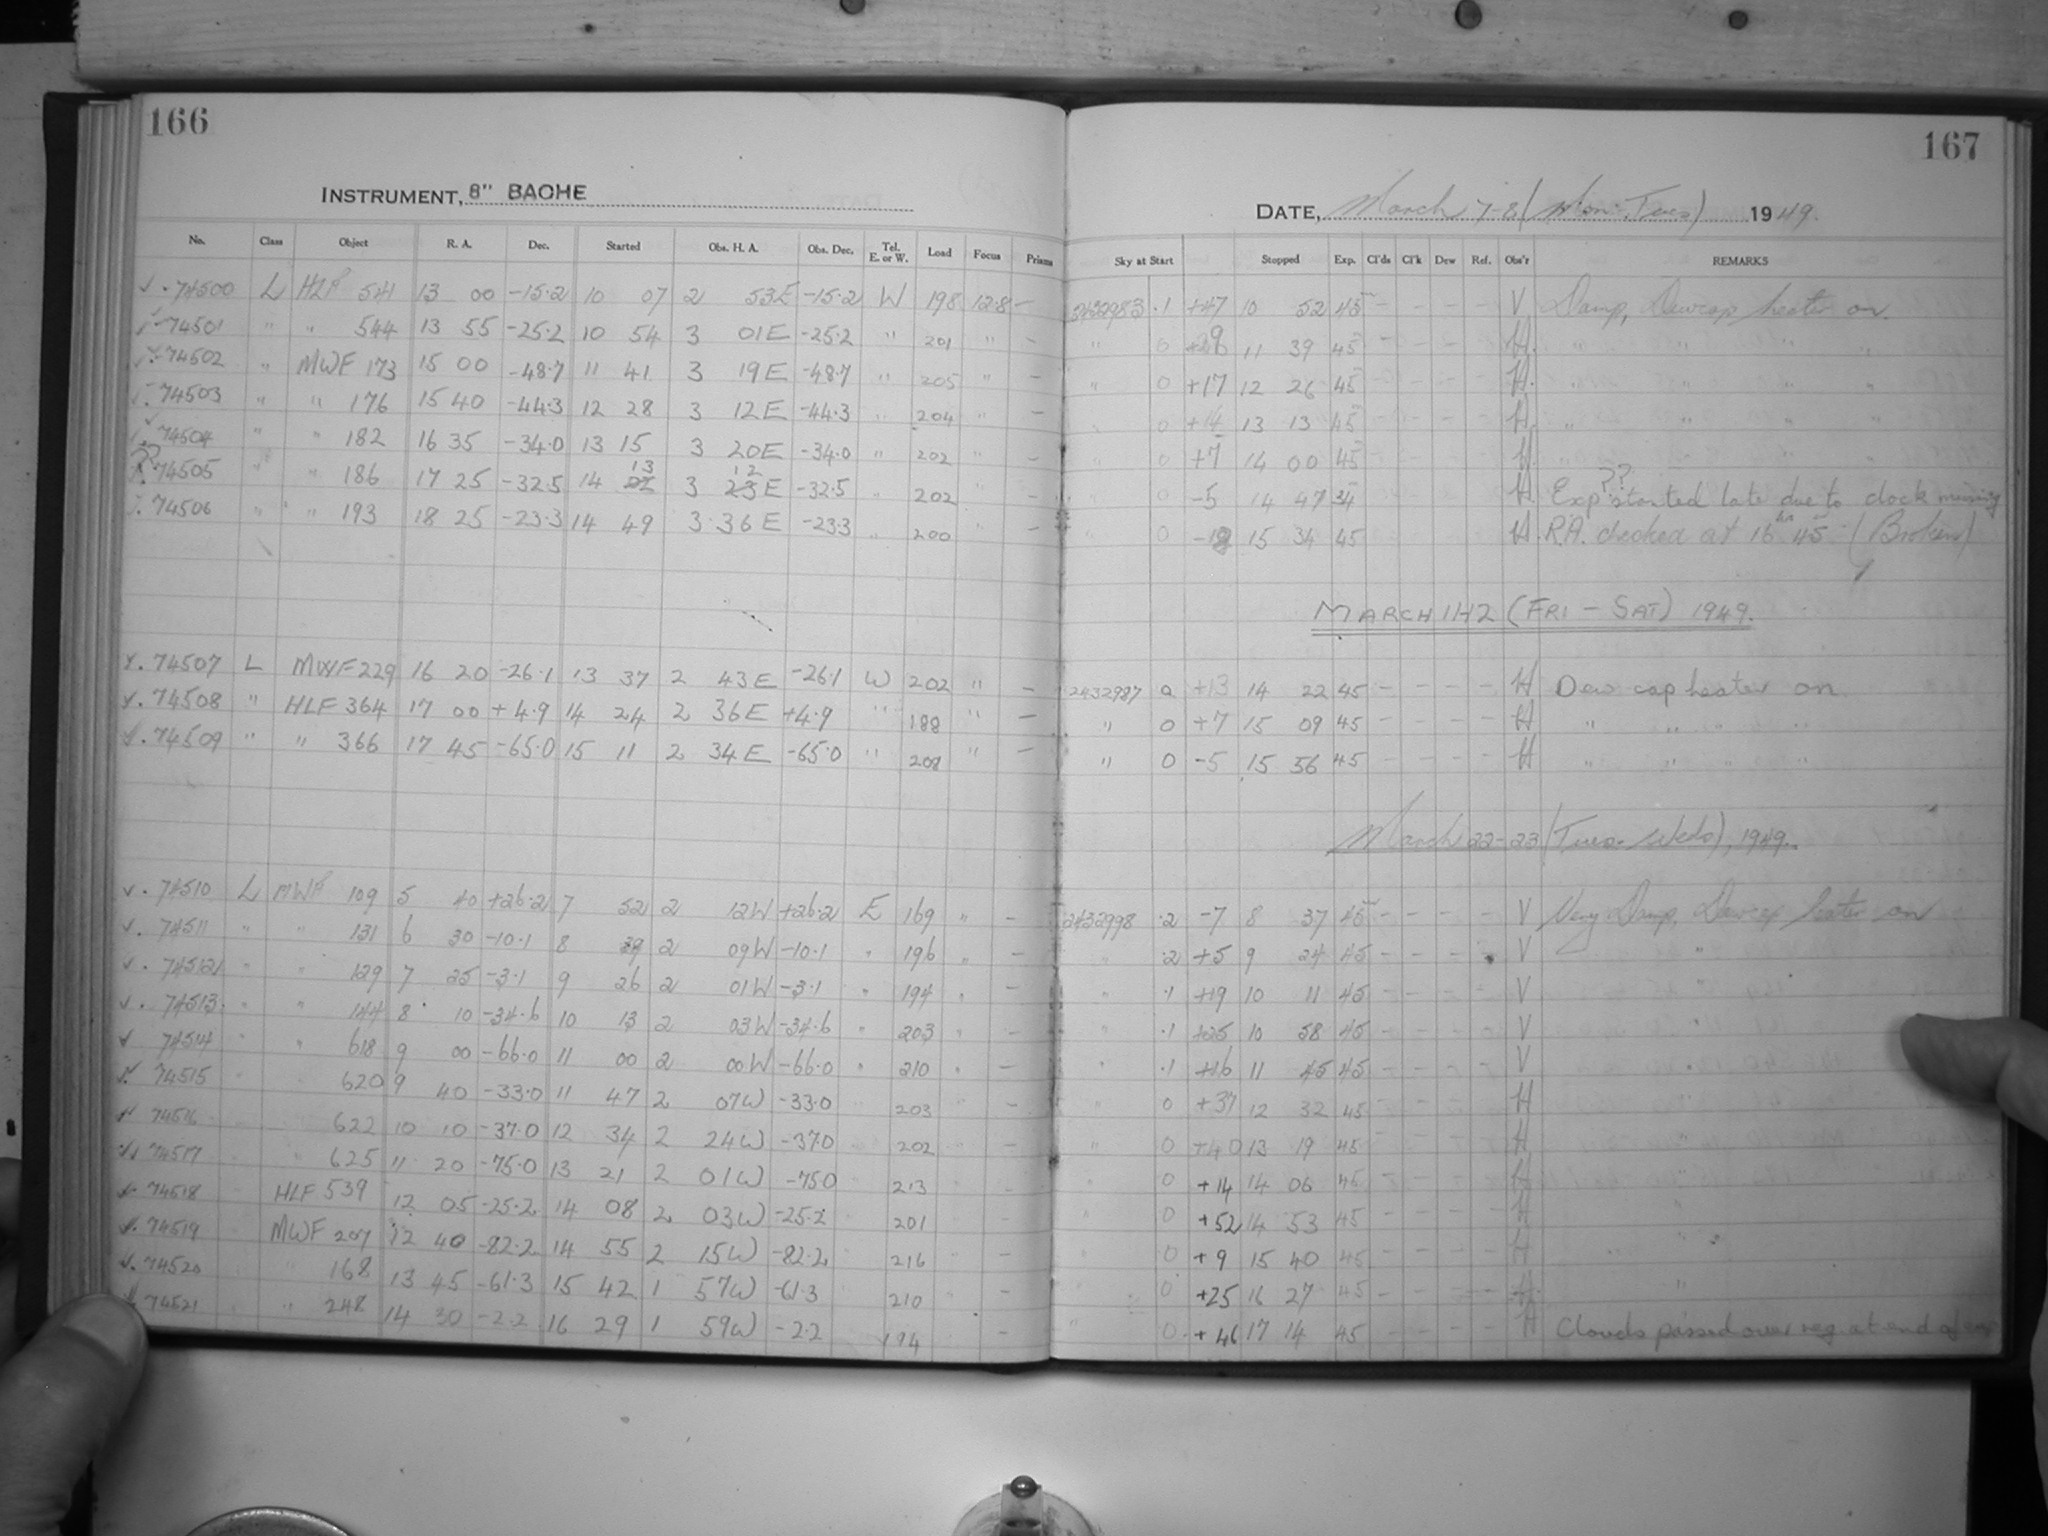 166
167
INSTRUMENT, 8" BACHE
DATE, March 7-8 (Mon-Tues) 1949.
No. Class Object R. A. Dec. Started Obs. H. A. Obs. Dec. Tel. E. or W. Load Focus Prisms Sky at Start Stopped Exp. Cl'ds Cl'k Dew Ref. Obs'r REMARKS
74500 L HLF 541 13 00 -15.2 10 07 2 53E -15.2 W 198 12.8 - 2432983 .1 +47 10 52 45 - - - - V Damp, Dewcap heater on.
74501 " " 544 13 55 -25.2 10 54 3 01E -25.2 " 201 " - " 0 11 39 45 - - - - H. " " " "
74502 " MWF 173 15 00 -48.7 11 41 3 19E -48.7 " 205 " - " 0 +17 12 26 45 - - - - H. " " " "
74503 " " 176 15 40 -44.3 12 28 3 12E -44.3 " 204 " - " 0 +14 13 13 45 - - - - H " " " "
74504 " " 182 16 35 -34.0 13 15 3 20E -34.0 " 202 " - " 0 +7 14 00 45 - - - - H
?? 74505 " " 186 17 25 -32.5 14 13 3 12 E -32.5 " 202 " - " 0 -5 14 47 34 H Exp ?? started late due to clock missing
74506 " " 193 18 25 -23.3 14 49 3 36 E -23.3 " 200 " - " 0 15 34 45 H. R.A. checked at 16 hr 45 (Broken)
MARCH 11-12 (FRI - SAT) 1949.
74507 L MWF 229 16 20 -26.1 13 37 2 43E -26.1 W 202 " - 2432987 0 +13 14 22 45 - - - - H Dew cap heater on
74508 " HLF 364 17 00 +4.9 14 24 2 36E +4.9 " 188 " - " 0 +7 15 09 45 - - - - H " " " "
74509 " " 366 17 45 -65.0 15 11 2 34E -65.0 " 208 " - " 0 -5 15 56 45 - - - - H " " " "
March 22-23 (Tues-Weds), 1949.
74510 L MWF 109 5 40 +26.2 7 52 2 12W +26.2 E 169 " - 2432998 .2 -7 8 37 45 - - - - V Very Damp, Dewcap heater on
74511 " " 131 6 30 -10.1 8 39 2 09W -10.1 " 196 " - " .2 +5 9 24 45 - - - - V "
74512 " " 129 7 25 -3.1 9 26 2 01W -3.1 " 194 " - " .1 +19 10 11 45 - - - - V
74513 " " 144 8 10 -34.6 10 13 2 03W -34.6 " 203 " - " .1 +25 10 58 45 - - - - V "
74514 " " 618 9 00 -66.0 11 00 2 00W -66.0 " 210 " - " .1 +16 11 45 45 - - - - V "
74515 " 620 9 40 -33.0 11 47 2 07W -33.0 " 203 " - " 0 +37 12 32 45 - - - - H
74516 " 622 10 10 -37.0 12 34 2 24W -37.0 202 " - " 0 +40 13 19 45 - - - - H "
74517 " 625 11 20 -75.0 13 21 2 01W -75.0 " 213 - " 0 +14 14 06 45 - - - - H "
74518 HLF 539 12 05 -25.2 14 08 2 03W -25.2 " 201 - " 0 +52 14 53 45 - - - - H "
74519 MWF 207 12 40 -82.2 14 55 2 15W -82.2 " 216 " - " 0 +9 15 40 45 - - - - H "
74520 " 168 13 45 -61.3 15 42 1 57W -61.3 " 210 " - " 0 +25 16 27 45 - - - - H "
74521 " 248 14 30 -2.2 16 29 1 59W -2.2 194 - " 0 +46 17 14 45 - - - - H Clouds passed over reg. at end of exp